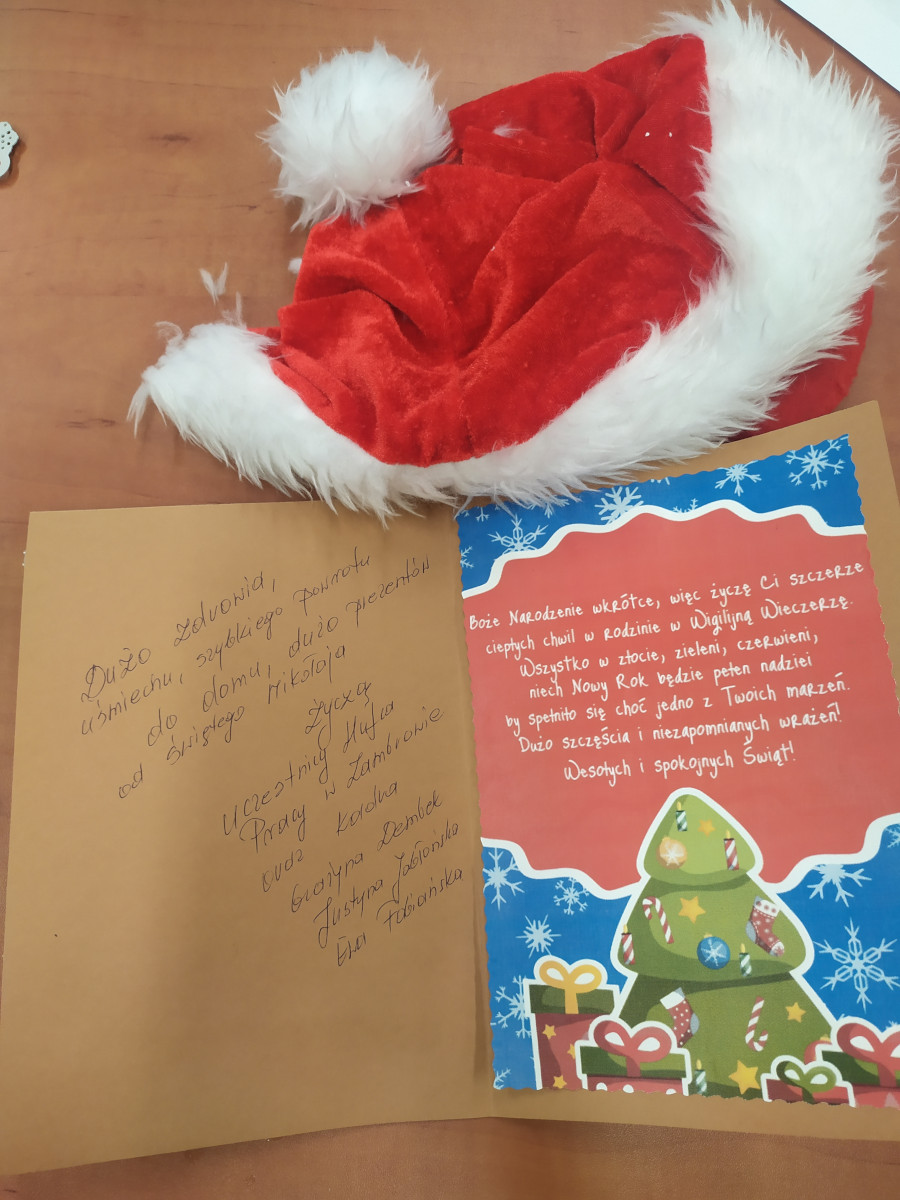 Dużo zdrowia,
uśmiechu, szybkiego powrotu
do domu, dużo prezentów
od Świętego Mikołaja
życzą
Uczestnicy Hufca
Pracy w Zambrowie
oraz kadra
Grażyna Dembek
Justyna Jabłońska
Ewa Fabiańska
Boże Narodzenie wkrótce, więc życzę Ci szczerze
ciepłych chwil w rodzinie w Wigilijną Wieczerzę.
Wszystko w złocie, zieleni, czerwieni,
niech Nowy Rok będzie pełen nadziei
by spełniło się choć jedno z Twoich marzeń.
Dużo szczęścia i niezapomnianych wrażeń!
Wesołych i spokojnych Świąt!